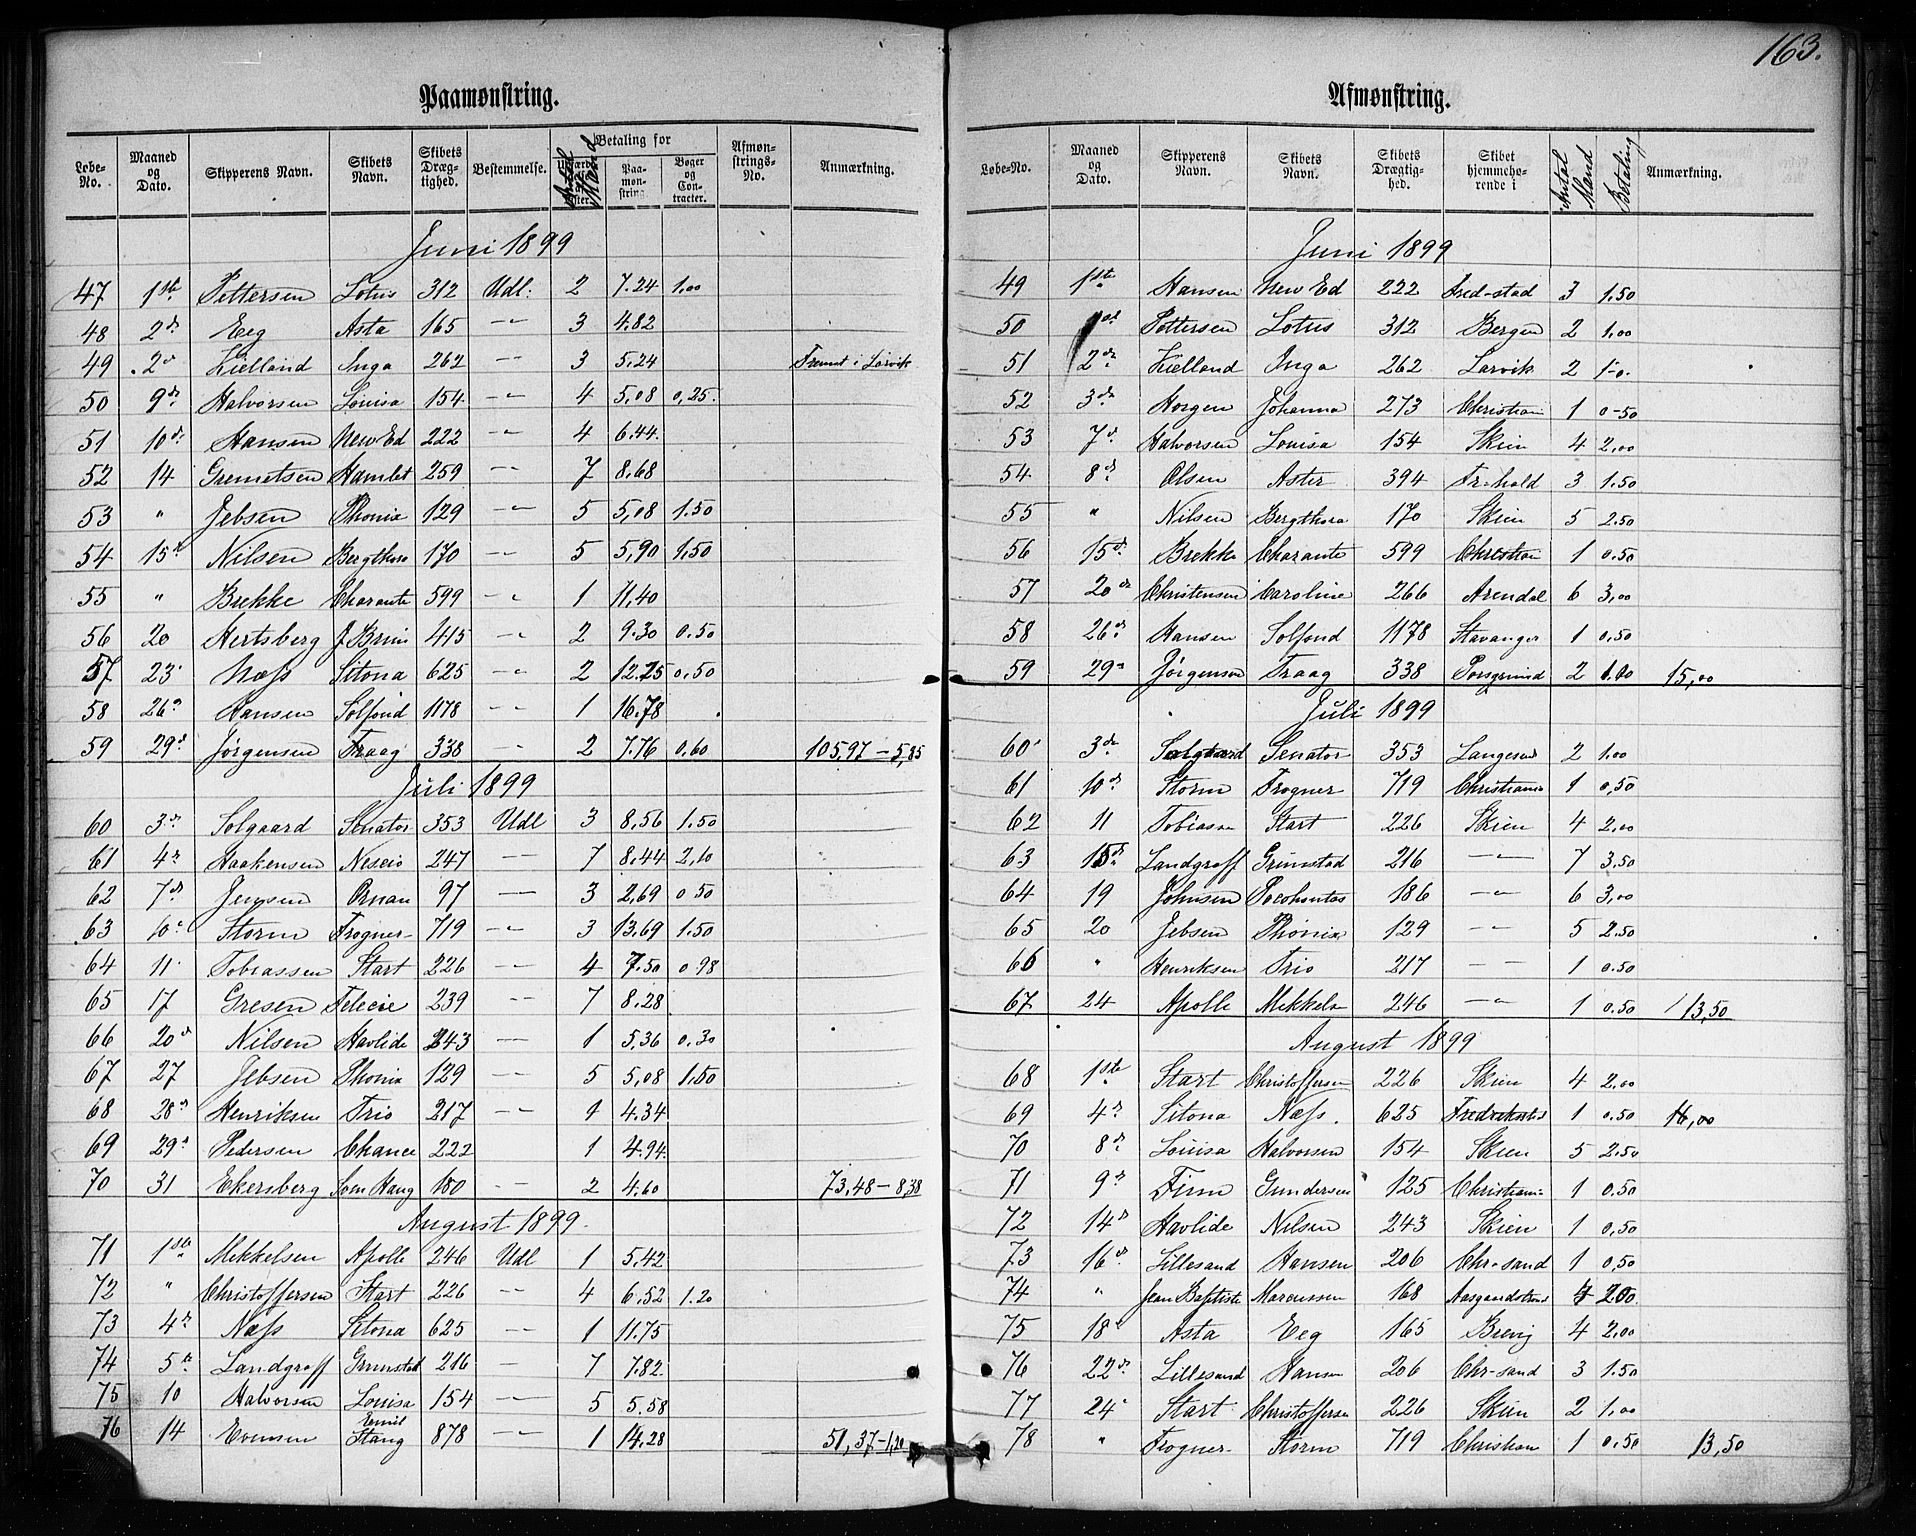 163.
Paamønstring.
Løbe-No. Maaned og Dato. Skipperens Navn. Skibets Navn. Skibets Drægtighed. Bestemmelse. Antal Mand Betaling for Paamønstring Bøger og Contracter. Afmønstrings-No. Anmærkning.
Juni 1899
47 1ste Pettersen Lotus 312 Udl: 2 7.24 1.00
48 2d Eeg Asta 165 -"- 3 4.82
49 2d Kielland Inga 262 -"- 3 5.24 Fremst i Larvik
50 9de Halvorsen Louisa 154 -"- 4 5,08 0,25.
51 10d Hansen New Ed 222 -"- 4 6.44.
52 14 Gremetsen Hamlet 259 -"- 7 8,68
53 " Jebsen Phonix 129 -"- 5 5,08 1.50
54 15d Nilsen Bergthora 170 -"- 5 5,90 1,50
55 " Brekke Charante 599 -"- 1 11,40
56 20 Hertsberg J. Bruns 415 -"- 2 9.30 0.50
57 23 Næss Sitona 625 -"- 2 12.25 0,50
58 26d Hansen Solfond 1178 -"- 1 16.78
59 29d Jørgensen Traag 338 - 2 7.76 0,60 105,97 - 5,85
Juli 1899
60 3de Solgaard Senator 353 Udl 3 8,56 1.50
61 4d Haakensen Neseio 247 -"- 7 8,44 2,10
62 7de Jensen Ornan 97 -"- 3 2,69 0 50
63 10d Storm Frogner 719 -"- 3 13.69 1.50
64 11 Tobiassen Start 226 -"- 4 7.50 0 98
65 17 Gresen Felicie 239 -"- 7 8.28
66 20d Nilsen Havlide 243 -"- 1 5,36 0,30
67 27 Jebsen Phonix 129 -"- 5 5,08 1,50
68 28d Henriksen Trio 217 -"- 1 4.34
69 29d Pedersen Chance 222 -"- 1 4.94
70 31 Ekersberg Sven Haug 180 -"- 2 4.60 73,48 - 8,38
August 1899.
71 1ste Mikkelsen Apolle 246 Udl 1 5.42
72 " Christoffersen Start 226 -"- 4 6,52 1.20
73 4d Næss Sitona 625 -"- 1 11.75
74 5te Landgraff Grimstad 216 - 7 7.82
75 10 Halvorsen Louisa 154 -"- 5 5.58
76 14 Evensen Emil Stang 878 -"- 1 14.28 51,37 - 1,20
Afmønstring.
Løbe-No. Maaned og Dato. Skipperens Navn. Skibets Navn. Skibets Drægtighed. Skibet hjemmehørende i Antal Mand Betaling Anmærkning.
Juni 1899
49 1ste Hansen New Ed 222 Fred-stad 3 1.50
50 1d Pettersen Lotus 312 Bergen 2 1,00
51 2de Kielland Inga 262 Larvik 2 1-0.
52 3de Horgen Johanna 273 Christian 1 0-50
53 7d Halvorsen Louisa 154 Skien 4 2,00
54 8d Olsen Aster 394 Fr-hald 3 1.50
55 " Nilsen Bergthora 170 Skien 5 2.50
56 15d Brekke Charante 599 Christian 1 0.50
57 20de Christensen Caroline 266 Arendal 6 3,00
58 26d Hansen Solfond 1178 Stavanger 1 0,50
59 29d Jørgensen Traag 338 Porsgrund 2 1.00 15,00
Juli 1899
60 3de Solgaard Senator 353 Langesund 2 1.00
61 10d Storm Frogner 719 Christiania 1 0,50
62 11 Tobiasen Start 226 Skien 4 2,00
63 15d Landgraff Grimstad 216 -"- 7 3,50
64 19 Johnsen Pocohontas 186 -"- 6 3,00
65 20 Jebsen Phonix 129 -"- 5 2.50
66 " Henriksen Trio 217 - - 1 0.50
67 24 Apolle Mikkelsen 246 -"- 1 0.50 13,50
August 1899
68 1ste Start Christoffersen 226 Skien 4 2,00
69 4d Sitona Næss. 625 Fredrikstad 1 0.50 16,00
70 8d Louisa Halvorsen 154 Skien 5 2.50
71 9d Finn Gundersen 125 Christiania 1 0.50
72 14d Havlide Nilsen 243 Skien 1 0,50
73 16d Lillesand Hansen 206 Chr-sand 1 0,50
74 " Jean Baptiste Marcussen 168 Aasgaardstrand 4 2.00
75 18 Asta Eeg 165 Brevig 4 2,00
76 22de Lillesand Hansen 206 Chr-sand 3 1.50
77 24 Start Christoffersen 226 Skien 2 1,00
78 " Frogner Storm 719 Christian 1 0.50 13,50